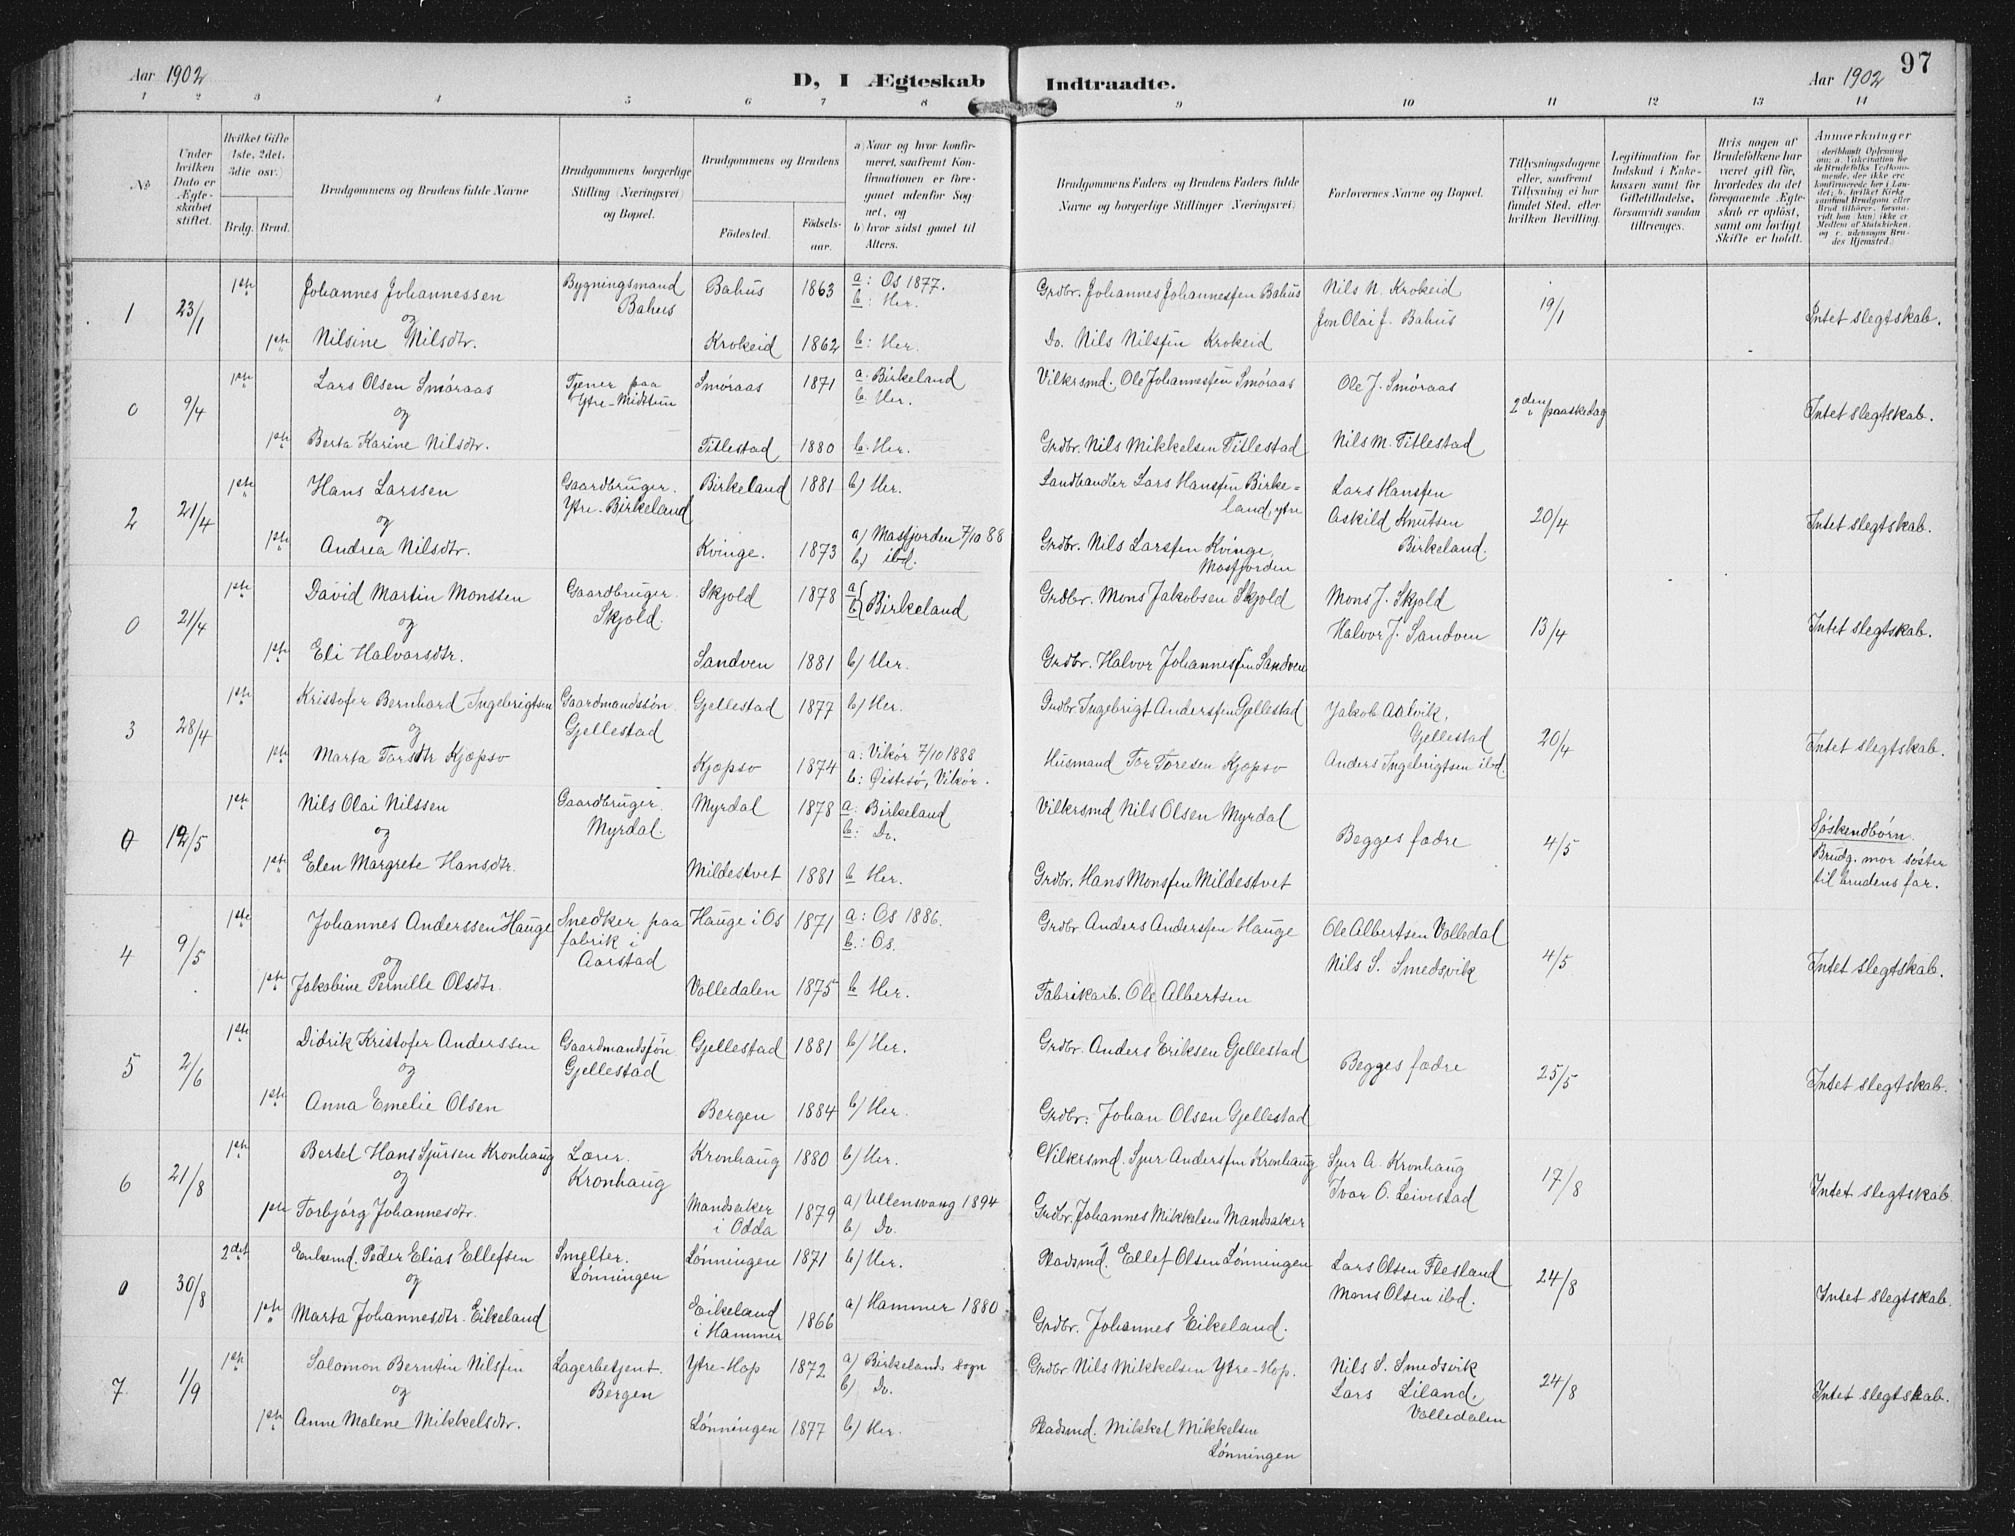 Aar 1902
D, I Ægteskab Indtraadte.
Aar 1902
97
1 2 3 4 5 6 7 8 9 10 11 12 13 14
No
Under hvilken Dato er Ægteskabet stiftet.
Hvilket Gifte (1ste, 2det, 3die osv.)
Brdg. Brud.
Brudgommens og Brudens fulde Navne
Brudgommens borgerlige Stilling (Næringsvei) og Bopæl.
Brudgommens og Brudens
Fødested.
Fødselsaar.
a) Naar og hvor konfirmeret, saafremt Konfirmationen er foregaaet udenfor Sognet, og
b) hvor sidst gaaet til Alters.
Brudgommens Faders og Brudens Faders fulde Navne og borgerlige Stillinger (Næringsvei)
Forlovernes Navne og Bopæl.
Tillysningsdagene eller, saafremt Tillysning ei har fundet Sted, efter hvilken Bevilling.
Legitimation for Indskud i Enkekassen samt for Giftetilladelse, forsaavidt saadan tiltrænges.
Hvis nogen af Brudefolkene har været gift før, hvorledes da det foregaaende Ægteskab er opløst, samt om lovligt Skifte er holdt.
Anmærkninger
(deriblandt Oplysning om: a. Vakcination for de Brudefolks Vedkommende, der ikke ere konfirmerede her i Landet; b. hvilket Kirkesamfund Brudgom eller Brud tilhører, forsaavidt han (hun) ikke er Medlem af Statskirken, og c. udensogns Brudes Hjemsted.)
1 23/1 1ste Johannes Johannessen Bygningsmand Bahus Bahus 1863 a: Os 1877. b: Her. Grdbr. Johannes Johannessen Bahus Nils N. Krokeid Jon Olai J. Bahus 19/1 Intet slegtskab.
og
1ste Nilsine Nilsdtr. Krokeid 1862 b: Her. Do. Nils Nilssen Krokeid
0 9/4 1ste Lars Olsen Smøraas Tjener paa Ytre-Midttun Smøraas 1871 a: Birkeland b: Her. Vilkrsmd. Ole Johannessen Smøraas Ole J. Smøraas 2den paaskedag Intet slegtskab.
og
1ste Berta Karine Nilsdtr. Titlestad 1880 b: Her. Grdbr. Nils Mikkelsen Titlestad Nils M. Titlestad
2 21/4 1ste Hans Larssen Gaardbruger. Ytre-Birkeland Birkeland 1881 b) Her. Landhandler Lars Hanssen Birkeland, ytre Lars Hanssen Askild Knutsen Birkeland. 20/4 Intet slegtskab.
og
1ste Andrea Nilsdtr. Kvinge. 1873 a) Masfjorden 7/10 88 b) ibd. Grdbr. Nils Larssen Kvinge, Masfjorden
0 21/4 1ste David Martin Monssen Gaardbruger. Skjold. Skjold 1878 a b } Birkeland Grdbr. Mons Jakobsen Skjold Mons J. Skjold Halvor J. Sandven 13/4 Intet slegtskab.
og
1ste Eli Halvorsdtr. Sandven 1881 b) Her. Grdbr. Halvor Johannessen Sandven
3 28/4 1ste Kristofer Bernhard Ingebrigtsen Gaardmandssøn. Gjellestad Gjellestad 1877 b) Her. Grdbr. Ingebrigt Anderssen Gjellestad Jakob Aalvik, Gjellestad Anders Ingebrigtsen ibd. 20/4 Intet slegtskab.
og
1ste Marta Torsdtr Kjøpsø Kjøpsø 1874 a: Vikør 7/10 1888 b: Østesø, Vikør. Husmand Tor Toresen Kjøpsø
0 12/5 1ste Nils Olai Nilssen Gaardbruger. Myrdal. Myrdal 1878 a: Birkeland b: Do. Vilkrsmd Nils Olsen Myrdal Begges fædre 4/5 Søskendbørn. Brudg. mor søster til brudens far.
og
1ste Elen Margrete Hansdtr. Mildestvet 1881 b Her. Grdbr. Hans Monssen Mildestvet
4 9/5 1ste Johannes Anderssen Hauge Snedker paa fabrik i Aarstad Hauge i Os 1871 a: Os 1886. b.: Os. Grdbr Anders Anderssen Hauge Ole Albertsen Volledal Nils S. Smedsvik 4/5 Intet slegtskab.
og
1ste Jakobine Pernille Olsdtr. Volledalen 1875 b Her. Fabrikarb. Ole Albertsen
5 2/6 1ste Didrik Kristofer Anderssen Gaardmandssøn Gjellestad Gjellestad 1881 b) Her. Grdbr. Anders Eriksen Gjellestad Begges fædre 25/5 Intet slegtskab.
og
1ste Anna Emelie Olsen Bergen 1884 b) Her. Grdbr: Johan Olsen Gjellestad
6 21/8 1ste Bertel Hans Sjursen Kronhaug Lærer. Kronhaug Kronhaug 1880 b) Her. Vilkrsmd. Sjur Anderssen Kronhaug Sjur A. Kronhaug Ivar O. Leivestad 17/8 Intet slegtskab
og
1ste Torbjørg Johannesdtr. Mandsaker i Odda 1879 a) Ullensvang 1894 b) Do. Grdbr. Johannes Mikkelsen Mandsaker
0 30/8 2det Enkemd. Peder Elias Ellefsen Smelter. Lønningen Lønningen 1871 b) Her. Pladsmd. Ellef Olsen Lønningen Lars Olsen Flesland Mons Olsen ibd. 24/8 Intet slegtskab.
og
1ste Marta Johannesdtr. Eikeland Eikeland i Hammer 1866 a) Hammer 1880 Grdbr. Johannes Eikeland.
7. 1/9 1ste Salomon Berntin Nilssen Lagerbetjent. Bergen Ytre-Hop 1872 a) Birkelands sogn b) Do. Grdbr Nils Mikkelsen Ytre-Hop. Nils S. Smedsvik Lars Liland, Volledalen 24/8 Intet slegtskab.
og
1ste Anne Malene Mikkelsdtr. Lønningen 1877 b) Her. Pladsmd. Mikkel Mikkelsen Lønningen